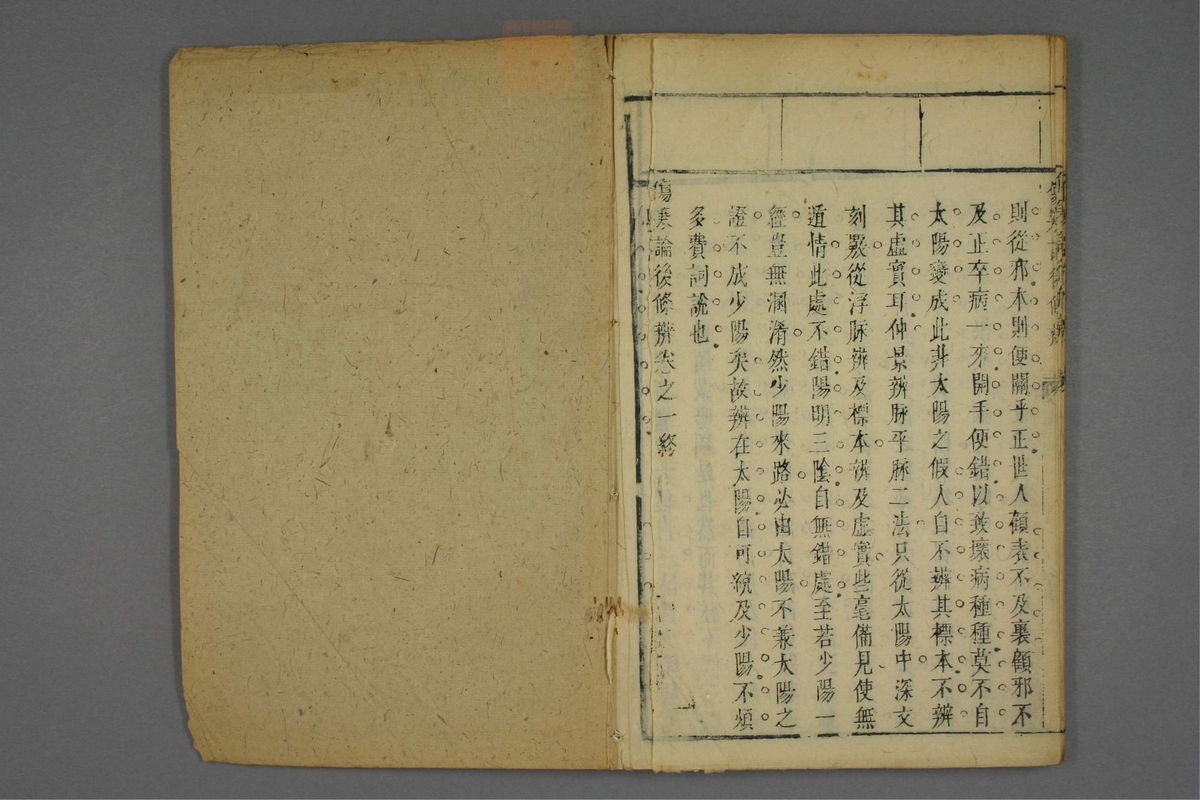 則從邪本則便關乎正世人顧表不及裏顧邪不
及正卒病一來開手便錯以致壞病種種莫不自
太陽變成此非太陽之假人自不辨其標本不辨
其虛實耳仲景辨脉平脉二法只從太陽中深文
刻覈從浮脉辨及標本辨及虛實些毫備見使無
遁情此處不錯陽明三陰自無錯處至若少陽一
經豈無溷淆然少陽來路必由太陽不兼太陽之
證不成少陽矣故辨在太陽自可統及少陽不煩
多費詞說也
傷寒論後條辨卷之一終